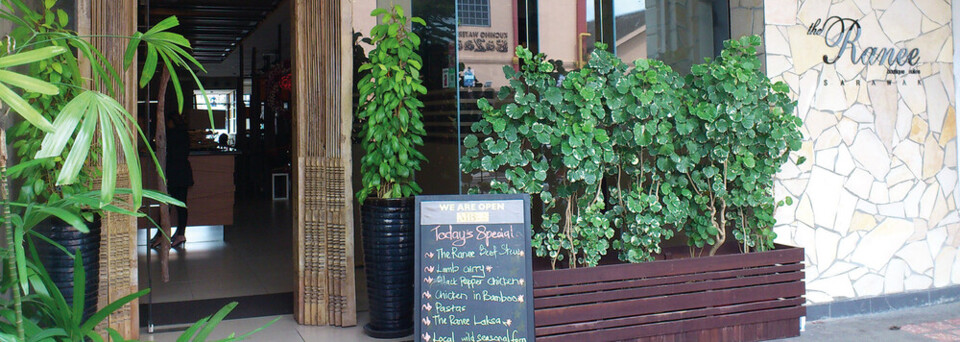 the
Ranee
SARAWAK
WE ARE OPEN
Today's Special
The Ranee Beef Stew
Lamb curry
Black Pepper chicken
Chicken in Bamboo
Pastas
The Ranee Laksa
Local wild seasonal fern